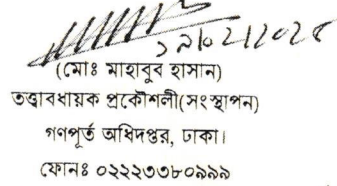 (মোঃ মাহাবুব হাসান)
তত্ত্বাবধায়ক প্রকৌশলী(সংস্থাপন)
গণপূর্ত অধিদপ্তর, ঢাকা।
ফোনঃ ০২২২৩৩৮০৯৯৯